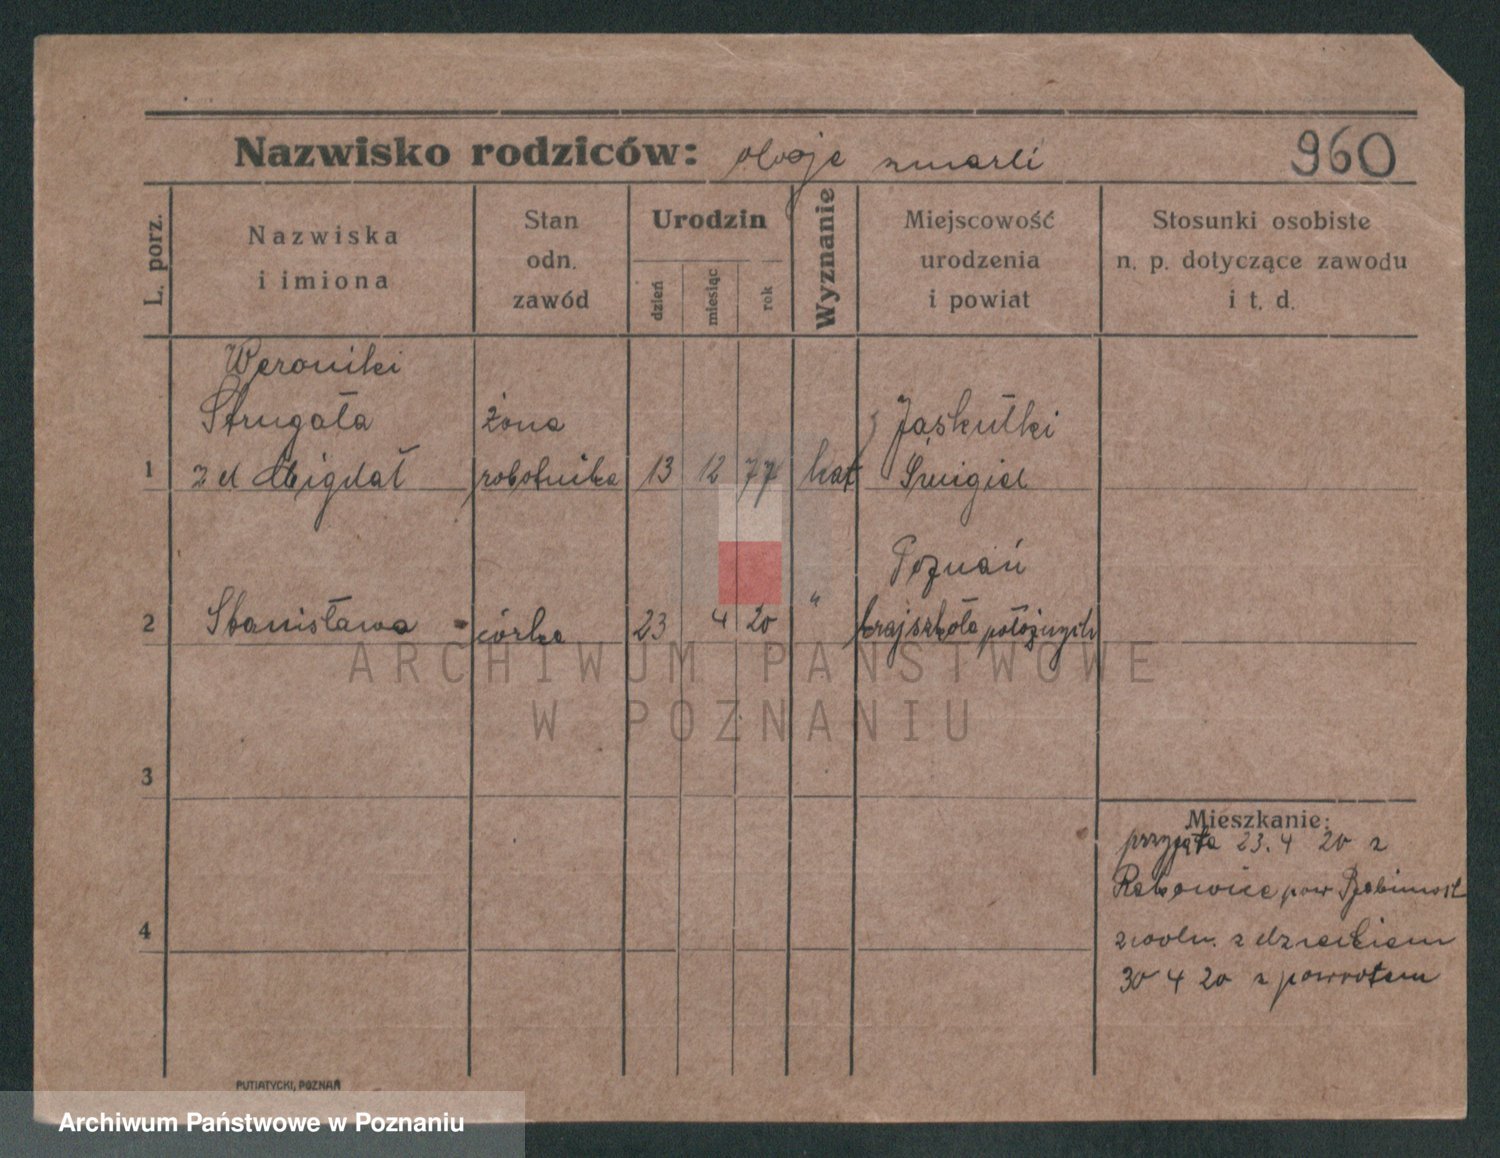 Nazwisko rodziców: oboje zmarli
960
L. porz.
Nazwiska
i imiona
Stan
odn.
zawód
Urodzin
dzień
miesiąc
rok
Wyznanie
Miejscowość
urodzenia
i powiat
Stosunki osobiste
n. p. dotyczące zawodu
i t. d.
Weroniki
Strugała żona Jaskułki
1 z d Migdał robotnika 13 12 77 kat Śmigiel
Poznań
2 Stanisława córka 23 4 20 " kraj szkoła położnych
3
Mieszkanie:
przyjęta 23. 4 20 z
Rakowice pow Babimost
4 zwoln. z dzieckiem
30 4 20 z powrotem
PUTIATYCKI, POZNAŃ
ARCHIWUM PAŃSTWOWE
W POZNANIU
Archiwum Państwowe w Poznaniu